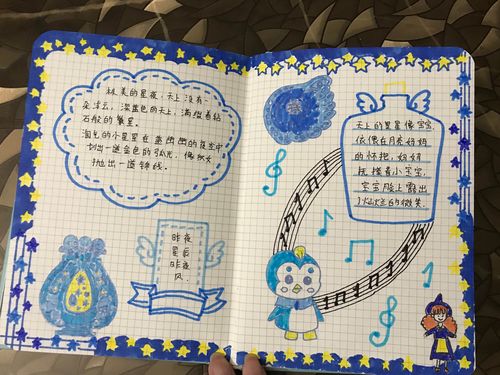 极美的星夜,天上没有一
朵浮云,深蓝色的天上,满缀着钻
石般的繁星。
淘气的小星星在蓝
划出一道金色的弧光,像织女
抛出一道锦线。
昨夜
星辰
昨夜
风
天上的星星像宝宝
依偎在月亮妈妈
的怀抱,妈妈
抚摸着小宝宝,
宝宝脸上露出
了灿烂的微笑.